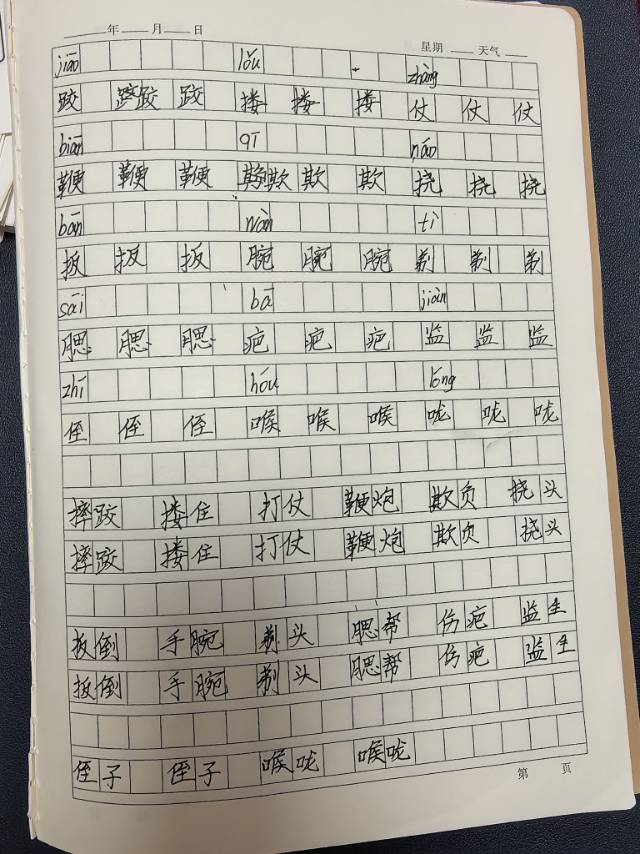 年 月 日 星期 天气
jiāo lǒu zhàng
跤 跤跤 跤 搂 搂 搂 仗 仗 仗
biān qī náo
鞭 鞭 鞭 欺欺 欺 欺 挠 挠 挠
bān wàn tì
扳 扳 扳 腕 腕 腕 剃 剃 剃
sāi bā jiān
腮 腮 腮 疤 疤 疤 监 监 监
zhí hóu lóng
侄 侄 侄 喉 喉 喉 咙 咙 咙
摔跤 搂住 打仗 鞭炮 欺负 挠头
摔跤 搂住 打仗 鞭炮 欺负 挠头
扳倒 手腕 剃头 腮帮 伤疤 监生
扳倒 手腕 剃头 腮帮 伤疤 监生
侄子 侄子 喉咙 喉咙
第 页